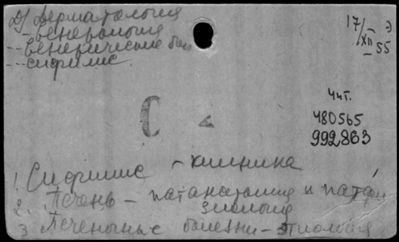 Д) Дерматология
- венерология
-- венерические бол
--- сифилис.
17/XII 55
Э
С
Чит.
480565
992863
1. Сифилис - клиника
2. Печень - патанатомия и патфи
зиология
3 Печеночные болезни - этиология